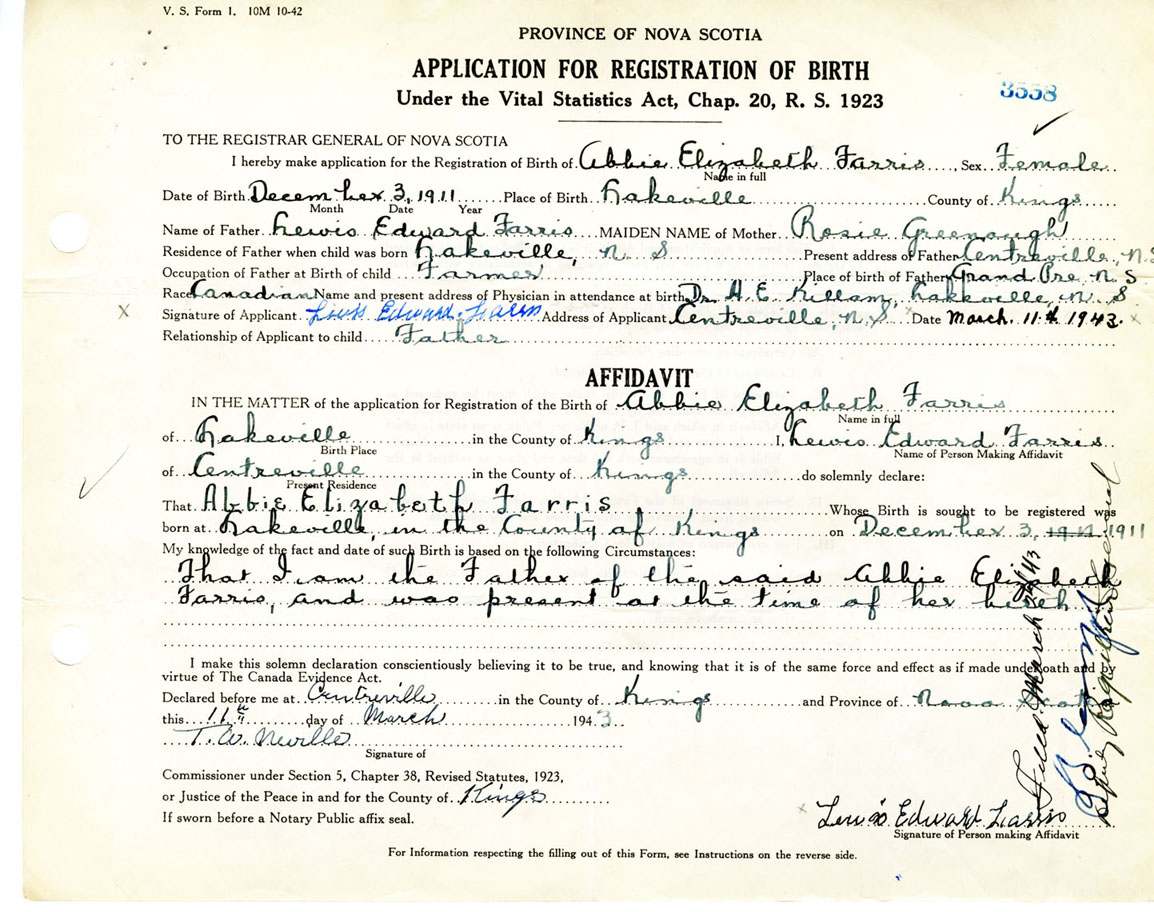 V. S. Form 1. 10M 10-42
PROVINCE OF NOVA SCOTIA
APPLICATION FOR REGISTRATION OF BIRTH
Under the Vital Statistics Act, Chap. 20, R. S. 1923
3558
TO THE REGISTRAR GENERAL OF NOVA SCOTIA
I hereby make application for the Registration of Birth of Abbie Elizabeth Farris Sex Female
Name in full
Date of Birth December 3, 1911 Place of Birth Lakeville County of Kings
Month Date Year
Name of Father Lewis Edward Farris MAIDEN NAME of Mother Rosie Greenough
Residence of Father when child was born Lakeville, N. S Present address of Father Centreville, N.S
Occupation of Father at Birth of child Farmer Place of birth of Father Grand Pre N. S
Race Canadian Name and present address of Physician in attendance at birth Dr. H. E. Killam, Lakeville, N. S
x Signature of Applicant Lewis Edward Farris Address of Applicant Centreville, N. S. Date March 11th 1943. x
Relationship of Applicant to child Father
AFFIDAVIT
IN THE MATTER of the application for Registration of the Birth of Abbie Elizabeth Farris
Name in full
of Lakeville in the County of Kings I, Lewis Edward Farris
Birth Place Name of Person Making Affidavit
of Centreville in the County of Kings do solemnly declare:
Present Residence
That Abbie Elizabeth Farris Whose Birth is sought to be registered was
born at Lakeville, in the County of Kings on December 3, 1911
My knowledge of the fact and date of such Birth is based on the following Circumstances:
That I am the Father of the said Abbie Elizabeth
Farris, and was present at the time of her birth
I make this solemn declaration conscientiously believing it to be true, and knowing that it is of the same force and effect as if made under oath and by
virtue of The Canada Evidence Act.
Declared before me at Centreville in the County of Kings and Province of Nova Scotia
this 11th day of March 1943
T. W. Neville
Signature of
Commissioner under Section 5, Chapter 38, Revised Statutes, 1923,
or Justice of the Peace in and for the County of Kings
If sworn before a Notary Public affix seal.
x Lewis Edward Farris
Signature of Person making Affidavit
For Information respecting the filling out of this Form, see Instructions on the reverse side.
Filed March
Deputy Registrar General